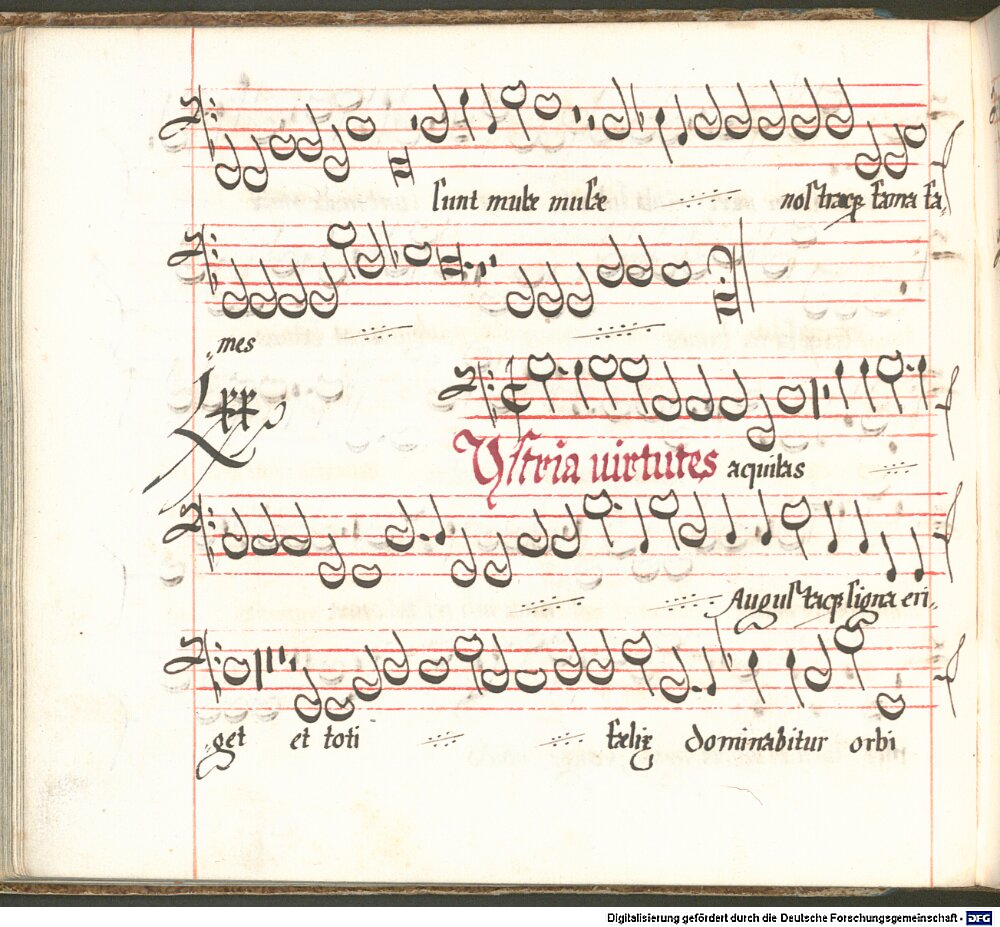 sunt mutæ musæ nostracq; fama fa,
,,mes
Lxx
Ystria virtutes aquitas
Augustacq; signa eri,,
,,get et toti fælix dominabitur orbi
Digitalisierung gefördert durch die Deutsche Forschungsgemeinschaft - DFG